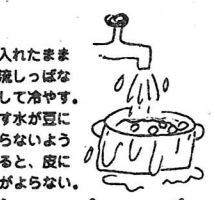 入れたまま
流しっぱな
して冷やす。
す水が豆に
らないよう
ると、皮に
がよらない。